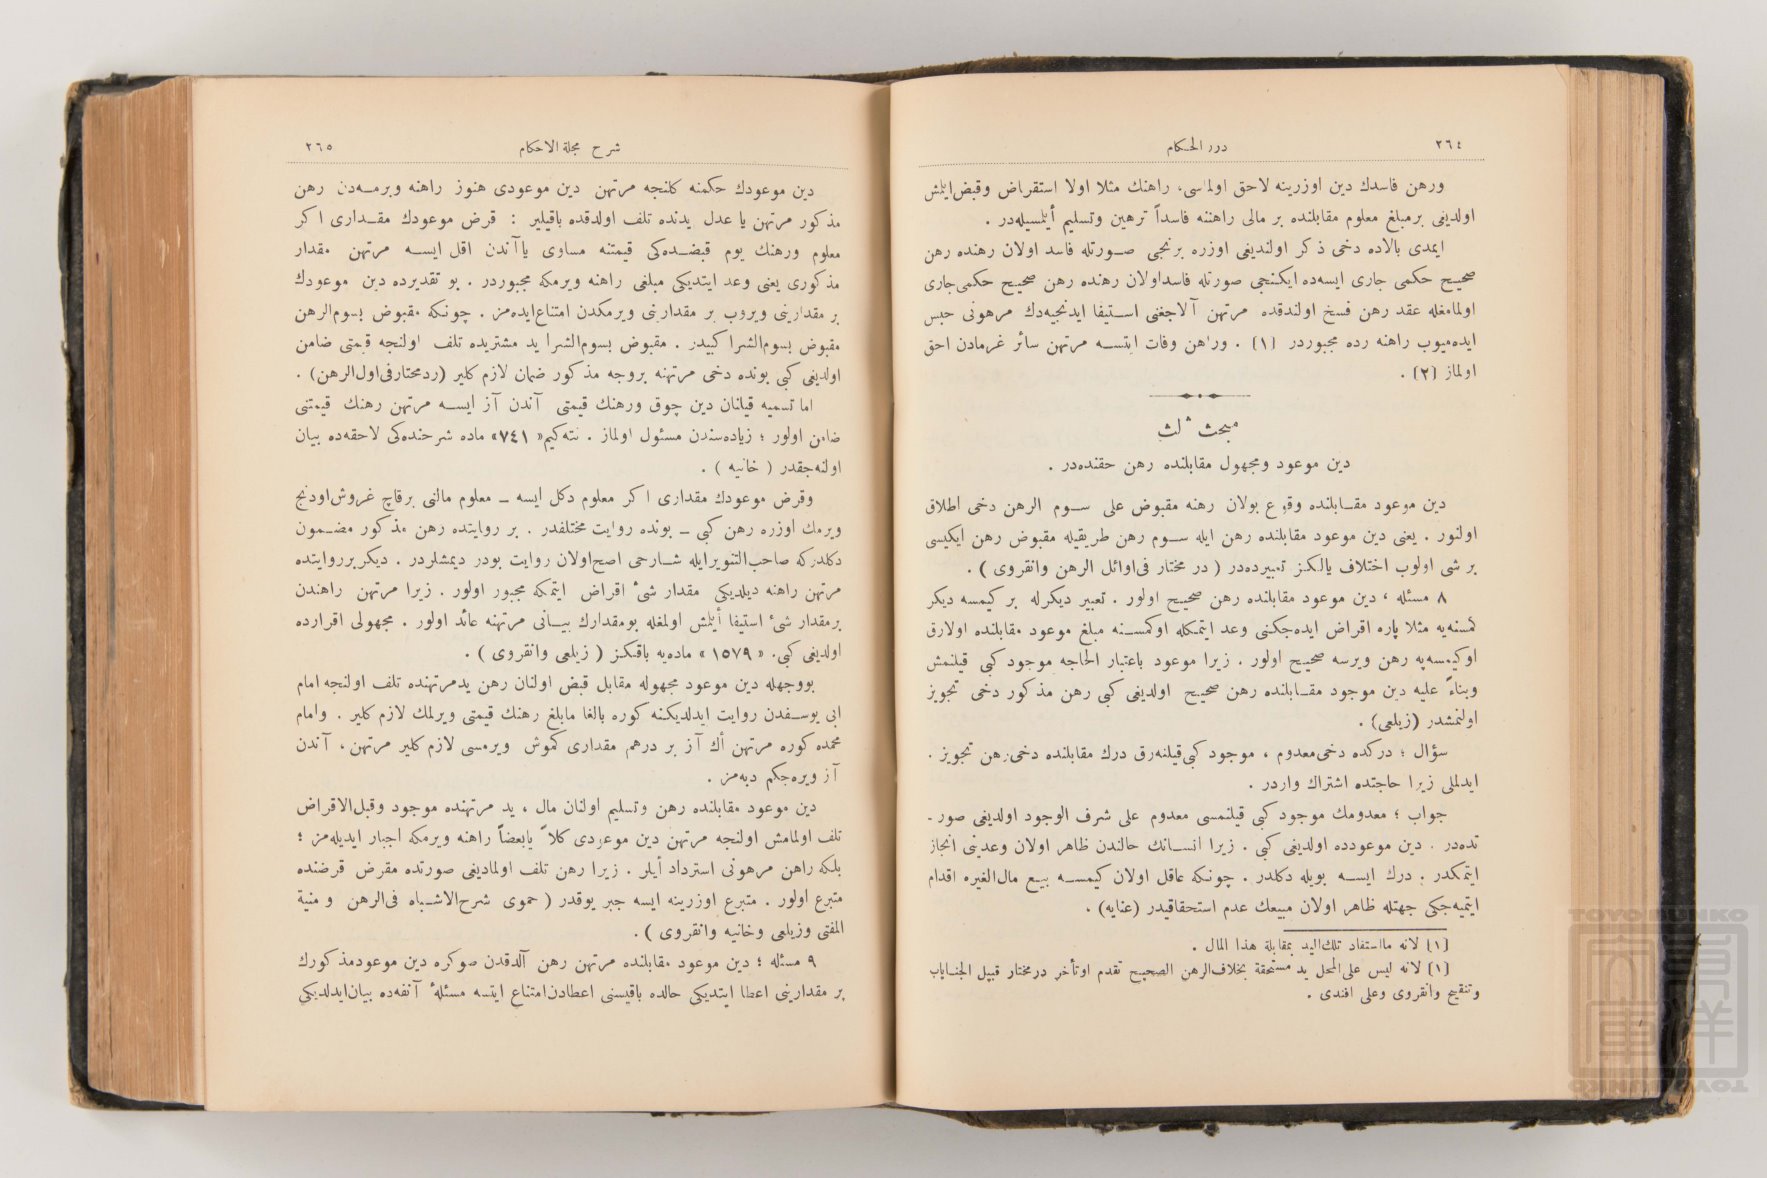 ٢٦٤
درر الحكام
ورهن فاسدك دين اوزرينه لاحق اولماسی، راهنك مثلا اولا استقراض وقبض‌ايلمش
اولديغی برمبلغ معلوم مقابلنده بر مالی راهننه فاسداً ترهين وتسليم أيلمسيله‌در .
ايمدی بالاده دخی ذكر اولنديغی اوزره برنجی صورتله فاسد اولان رهنده رهن
صحيح حكمی جاری ايسه‌ده ايكنجی صورتله فاسداولان رهنده رهن صحيح حكمی‌جاری
اولمامغله عقد رهن فسخ اولندقده مرتهن آلاجغنی استيفا ايدنجيه‌دك مرهونی حبس
ايده‌ميوب راهنه رده مجبوردر (١) . وراهن وفات ايتسه مرتهن سائر غرمادن احق
اولماز (٢) .
مبحث ثالث
دين موعود ومجهول مقابلنده رهن حقنده‌در .
دين موعود مقابلنده وقوع بولان رهنه مقبوض علی سوم الرهن دخی اطلاق
اولنور . يعنی دين موعود مقابلنده رهن ايله سوم رهن طريقيله مقبوض رهن ايكيسی
بر شی اولوب اختلاف يالكز تعبيرده‌در ( در مختار فی‌اوائل الرهن وانقروی ) .
٨ مسئله ؛ دين موعود مقابلنده رهن صحيح اولور . تعبير ديكرله بر كيمسه ديكر
كمسنه‌يه مثلا پاره اقراض ايده‌جكنی وعد ايتمكله اوكمسنه مبلغ موعود مقابلنده اولارق
اوكيمسه‌يه رهن ويرسه صحيح اولور . زيرا موعود باعتبار الحاجه موجود كبی قيلنمش
وبناءً عليه دين موجود مقابلنده رهن صحيح اولديغی كبی رهن مذكور دخی تجويز
اولنمشدر (زيلعی) .
سؤال ؛ دركده دخی‌معدوم ، موجود كبی‌قيلنه‌رق درك مقابلنده دخی‌رهن تجويز .
ايدلملی زيرا حاجتده اشتراك واردر .
جواب ؛ معدومك موجود كبی قيلنمسی معدوم علی شرف الوجود اولديغی صور ـ
تده‌در . دين موعودده اولديغی كبی . زيرا انسانك حالندن ظاهر اولان وعدينی انجاز
ايتمكدر . درك ايسه بويله دكلدر . چونكه عاقل اولان كيمسه بيع مال‌الغيره اقدام
ايتميه‌جكی جهتله ظاهر اولان مبيعك عدم استحقاقيدر (عنايه) .
(١) لانه مااستفاد تلك‌اليد بمقابلة هذا المال .
(١) لانه ليس علی‌المحل يد مستحقة بخلاف‌الرهن الصحيح تقدم اوتأخر درمختار قبيل الجنايات
وتنقيح وانقروی وعلی افندی .
شرح مجلة الاحكام
٢٦٥
دين موعودك حكمنه كلنجه مرتهن دين موعودی هنوز راهنه ويرمه‌دن رهن
مذكور مرتهن يا عدل يدنده تلف اولدقده باقيلير : قرض موعودك مقداری اكر
معلوم ورهنك يوم قبضده‌كی قيمتنه مساوی ياآندن اقل ايسه مرتهن مقدار
مذكوری يعنی وعد ايتديكی مبلغی راهنه ويرمكه مجبوردر . بو تقديرده دين موعودك
بر مقدارينی ويروب بر مقدارينی ويرمكدن امتناع‌ايده‌مز . چونكه مقبوض بسوم‌الرهن
مقبوض بسوم‌الشرا كبيدر . مقبوض بسوم‌الشرا يد مشتريده تلف اولنجه قيمتی ضامن
اولديغی كبی بونده دخی مرتهنه بروجه مذكور ضمان لازم كلير (ردمختارفی‌اول‌الرهن) .
اما تسميه قيلنان دين چوق ورهنك قيمتی آندن آز ايسه مرتهن رهنك قيمتنی
ضامن اولور ؛ زياده‌سندن مسئول اولماز . نته‌كيم « ٧٤١ » ماده شرحنده‌كی لاحقه‌ده بيان
اولنه‌جقدر ( خانيه ) .
وقرض موعودك مقداری اكر معلوم دكل ايسه ــ معلوم مالنی برقاچ غروش‌اودنج
ويرمك اوزره رهن كبی ــ بونده روايت مختلفدر . بر روايتده رهن مذكور مضمون
دكلدركه صاحب‌التنويرايله شارحی اصح‌اولان روايت بودر ديمشلردر . ديكربرروايتده
مرتهن راهنه ديلديكی مقدار شیٔ اقراض ايتمكه مجبور اولور . زيرا مرتهن راهندن
برمقدار شیٔ استيفا أيلمش اولمغله بومقدارك بيانی مرتهنه عائد اولور . مجهولی اقرارده
اولديغی كبی. « ١٥٧٩ » ماده‌يه باقكز ( زيلعی وانقروی ) .
بووجهله دين موعود مجهوله مقابل قبض اولنان رهن يدمرتهنده تلف اولنجه امام
ابی يوسفدن روايت ايدلديكنه كوره بالغا مابلغ رهنك قيمتی ويرلمك لازم كلير . وامام
محمده كوره مرتهن أك آز بر درهم مقداری كموش ويرمسی لازم كلير مرتهن، آندن
آز ويره‌جكم ديه‌مز .
دين موعود مقابلنده رهن وتسليم اولنان مال ، يد مرتهنده موجود وقبل‌الاقراض
تلف اولمامش اولنجه مرتهن دين موعودی كلاً يابعضاً راهنه ويرمكه اجبار ايديله‌مز ؛
بلكه راهن مرهونی استرداد أيلر . زيرا رهن تلف اولماديغی صورتده مقرض قرضنده
متبرع اولور . متبرع اوزرينه ايسه جبر يوقدر ( حموی شرح‌الاشباه فی‌الرهن و منية
المفتی وزيلعی وخانيه وانقروی ) .
٩ مسئله ؛ دين موعود مقابلنده مرتهن رهن آلدقدن صوكره دين موعودمذكورك
بر مقدارينی اعطا ايتديكی حالده باقيسنی اعطادن‌امتناع ايتسه مسئلهٔ آنفه‌ده بيان‌ايدلديكی
TOYO BUNKO
東洋
文庫